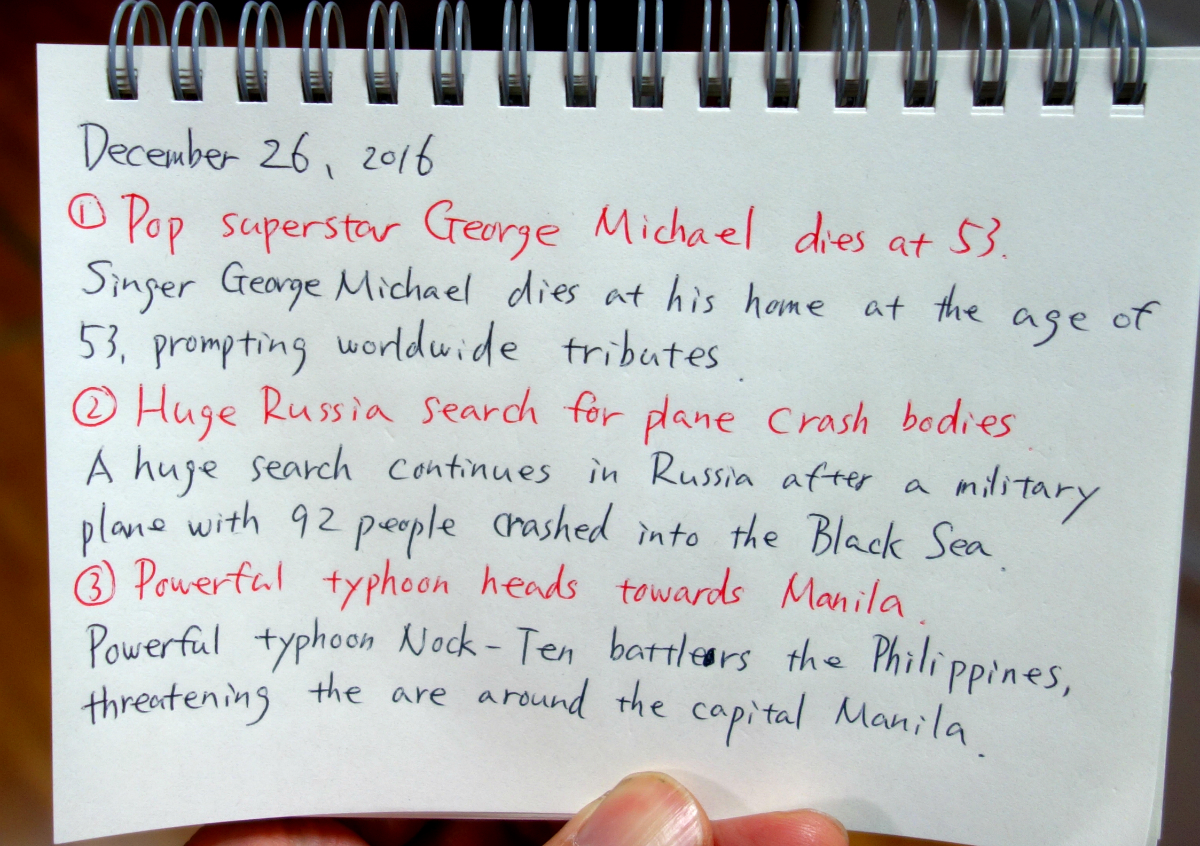 December 26, 2016
① Pop superstar George Michael dies at 53.
Singer George Michael dies at his home at the age of
53, prompting worldwide tributes.
② Huge Russia search for plane crash bodies.
A huge search continues in Russia after a military
plane with 92 people crashed into the Black Sea.
③ Powerful typhoon heads towards Manila.
Powerful typhoon Nock-Ten battlers the Philippines,
threatening the are around the capital Manila.